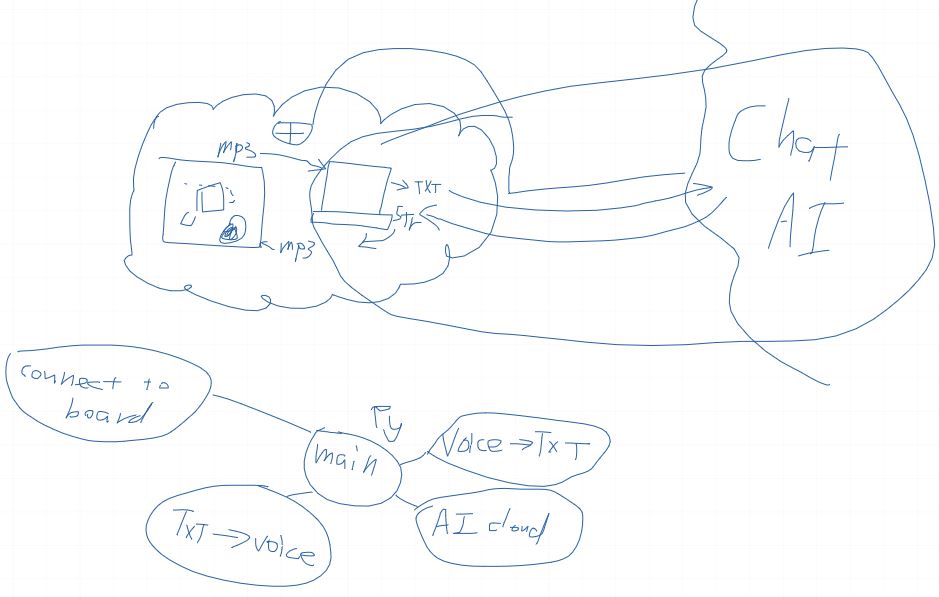 Chat
AI
mp3
TXT
Str
mp3
connect to
board
Py
main
Voice → TxT
TxT → voice
AI cloud